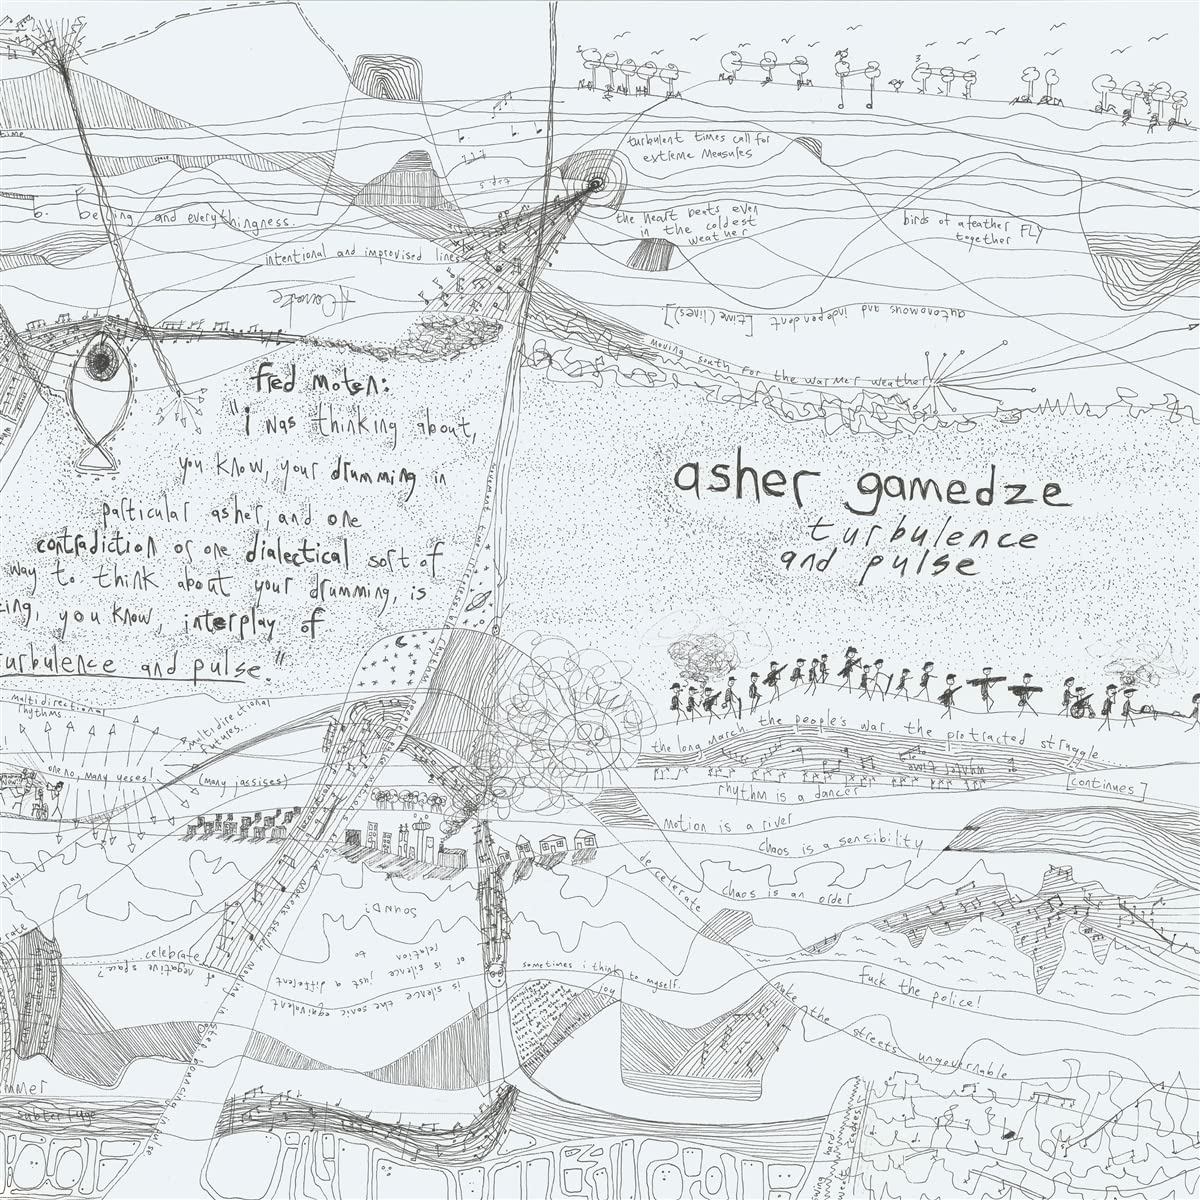 time
turbulent times call for
extreme measures
being and everythingness.
the heart beats even
in the coldest
weather
birds of a feather FLY
together
intentional and improvised lines
autonomous and independent [time(lines)]
moving south for the warmer weather
fred moten:
"i was thinking about,
you know, your drumming in
particular asher, and one
contradiction or one dialectical sort of
way to think about your drumming, is
you know, interplay of
turbulence and pulse."
asher gamedze
turbulence
and pulse
multidirectional
rhythms
multidirectional
futures...
one no, many yeses!
(many jassises)
the people's war. the protracted struggle.....
the long march.
what time
[continues]
rhythm is a dancer
motion is a river
chaos is a sensibility
decelerate
chaos is an order
play
SOUND?
or is silence just a different
relation to
is silence the sonic equivalent
of negative space?
celebrate
sometimes i think to myself.
joy
fuck the police!
make the streets ungovernable
moving in step. bouncing in pulse
subterfuge